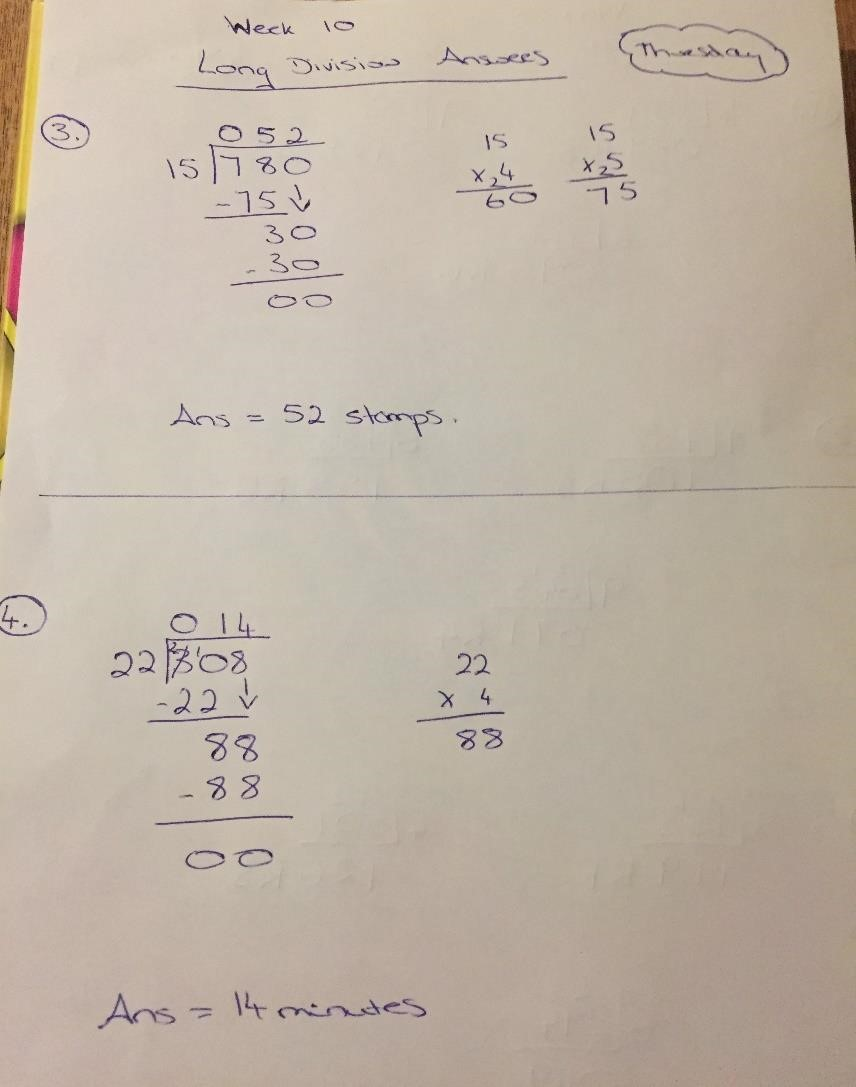 Week 10
Long Division Answers
Thursday
3.
052
15 780
-75↓
30
-30
00
15
x 24
60
15
x 25
75
Ans = 52 stamps.
4.
014
22 3 2 1 08
-22↓
88
-88
00
22
x 4
88
Ans = 14 minutes